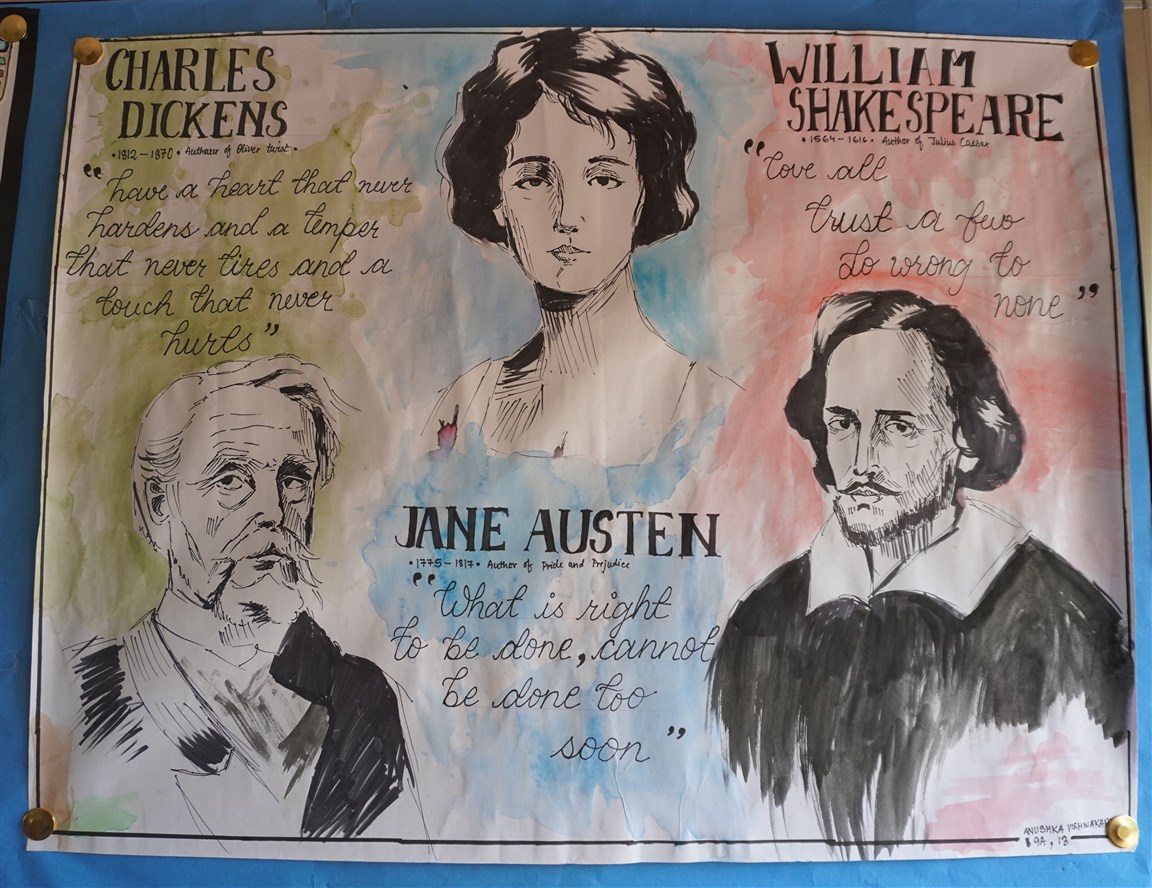 CHARLES
DICKENS
•1812-1870• Authazer of Oliver twist•
"have a heart that never
hardens and a temper
that never tires and a
touch that never
hurts"
JANE AUSTEN
•1775-1817• Author of Pride and Prejudice
"What is right
to be done, cannot
be done too
soon"
WILLIAM
SHAKESPEARE
•1564-1616• Author of Julius Caesar
"love all
trust a few
do wrong to
none"
ANUSHKA
9A, 13